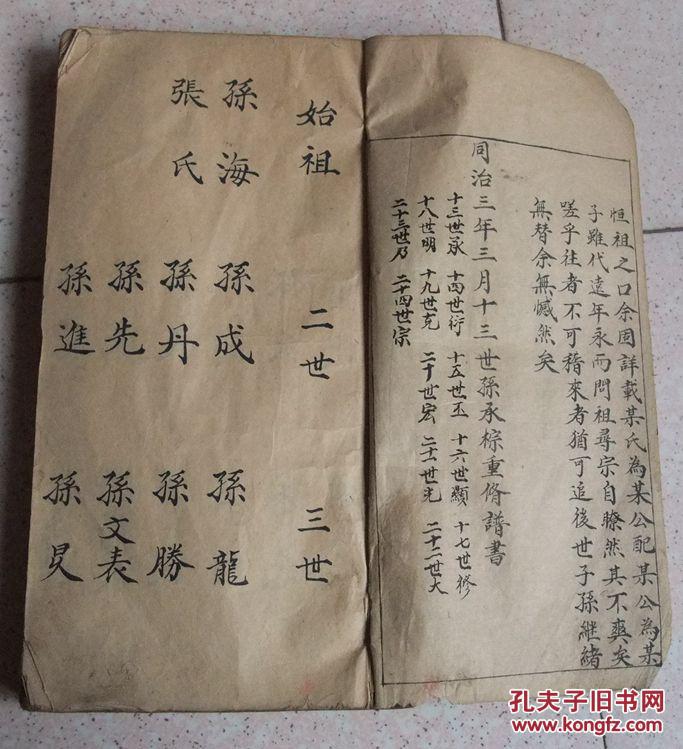 恒祖之口余固詳載某氏為某公配某公為某
子雖代遠年永而問祖尋宗自瞭然其不爽矣
嗟乎往者不可稽來者猶可追後世子孫繼緒
無替余無憾然矣
同治三年三月十三世孫承棕重脩譜書
十三世承 十四世衍 十五世丕 十六世顯 十七世修
十八世明 十九世克 二十世宏 二十一世光 二十二世大
二十三世乃 二十四世宗
始祖 二世 三世
孫海 孫成 孫龍
張氏 孫丹 孫勝
孫先 孫文表
孫進 孫旻
孔夫子旧书网
www.kongfz.com